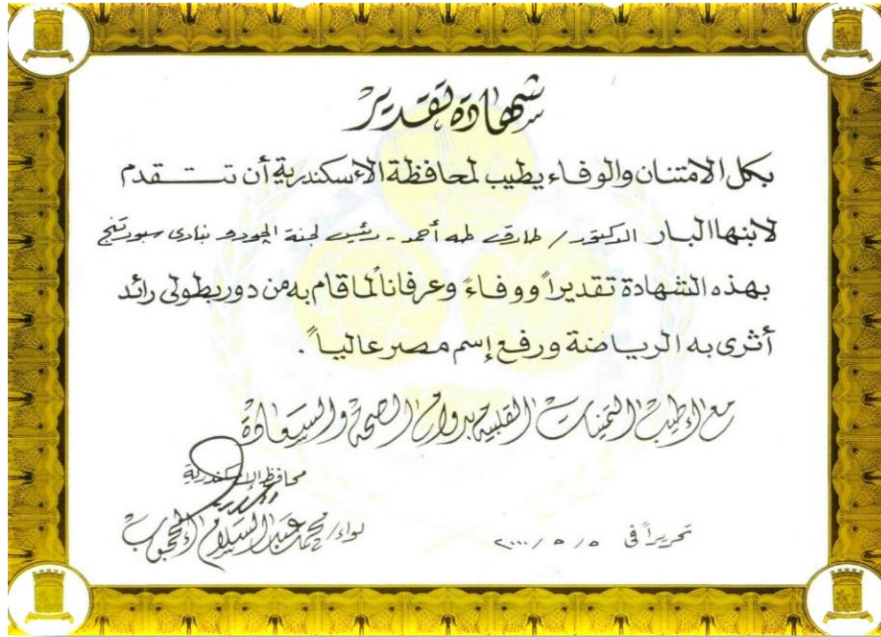 شهادة تقدير
بكل الامتنان والوفاء يطيب لمحافظة الإسكندرية أن تتقدم
لابنها البار الدكتور / طارق طه أحمد - رئيس لجنة الجودو بنادى سبورتنج
بهذه الشهادة تقديراً ووفاءً وعرفاناً لما قام به من دور بطولى رائد
أثرى به الرياضة ورفع إسم مصر عالياً.
مع أطيب التمنيات القلبية بدوام الصحة والسعادة
محافظ الإسكندرية
لواء/ محمد عبد السلام المحجوب
تحريراً فى ٥ / ٥ / ٢٠٠٠